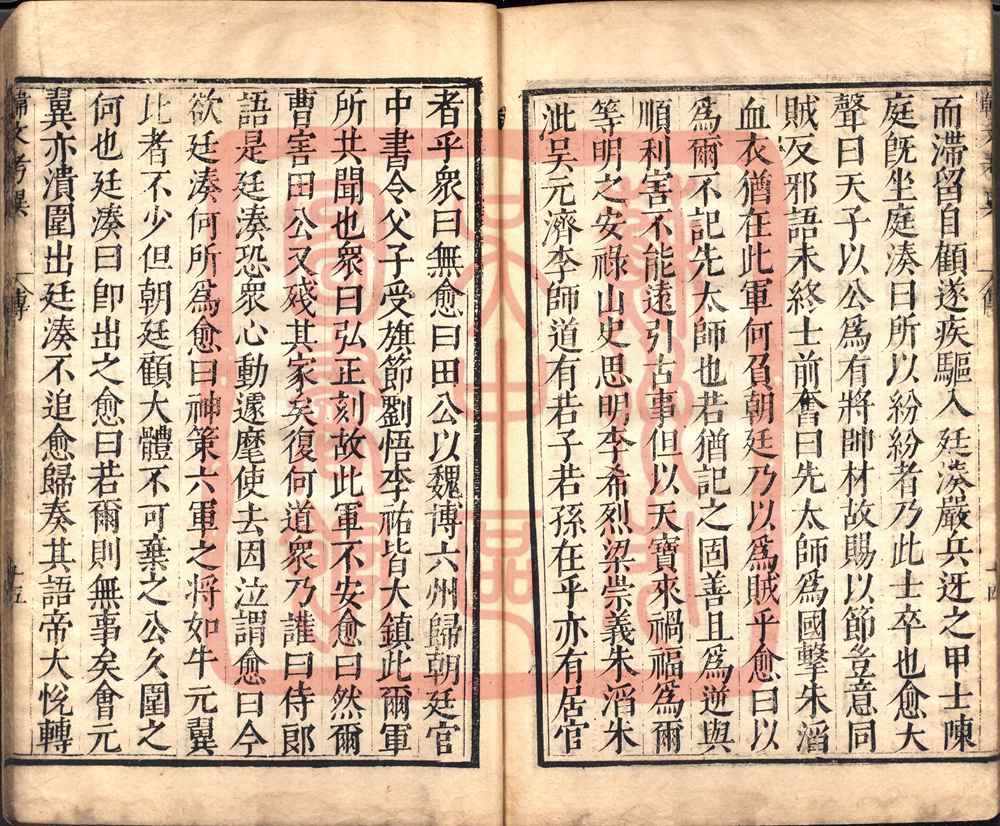 而滯留自顧遂疾驅入廷湊嚴兵迓之甲士陳
庭旣坐廷湊曰所以紛紛者乃此士卒也愈大
聲曰天子以公爲有將帥材故賜以節豈意同
賊反邪語未終士前奮曰先太師爲國擊朱滔
血衣猶在此軍何負朝廷乃以爲賊乎愈曰以
爲爾不記先太師也若猶記之固善且爲逆與
順利害不能遠引古事但以天寶來禍福爲爾
等明之安祿山史思明李希烈梁崇義朱滔朱
泚吴元濟李師道有若子若孫在乎亦有居官
者乎衆曰無愈曰田公以魏博六州歸朝廷官
中書令父子受旗節劉悟李祐皆大鎮此爾軍
所共聞也衆曰弘正刻故此軍不安愈曰然爾
曹害田公又殘其家矣復何道衆乃讙曰侍郎
語是廷湊恐衆心動遽麾使去因泣謂愈曰今
欲廷湊何所爲愈曰神策六軍之將如牛元翼
比者不少但朝廷顧大體不可棄之公久圍之
何也廷湊曰卽出之愈曰若爾則無事矣會元
翼亦潰圍出廷湊不追愈歸奏其語帝大悅轉
韓文考異
傳
十五